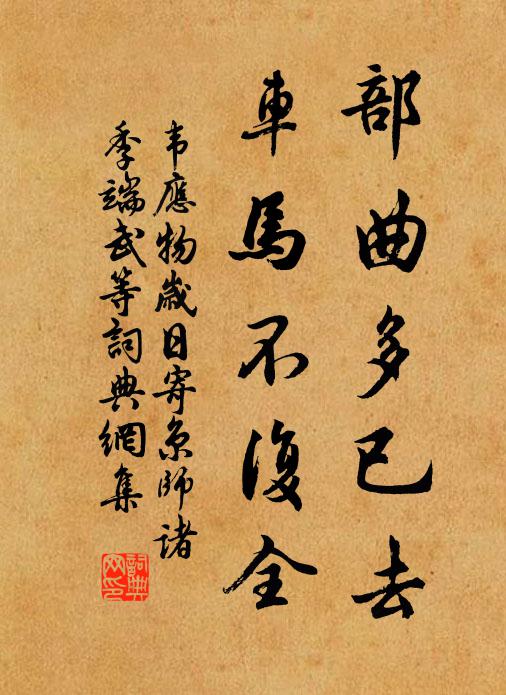 部曲多已去
車馬不復全
韦應物歲日寄京師諸
季端武等詞典網集
詞典网印